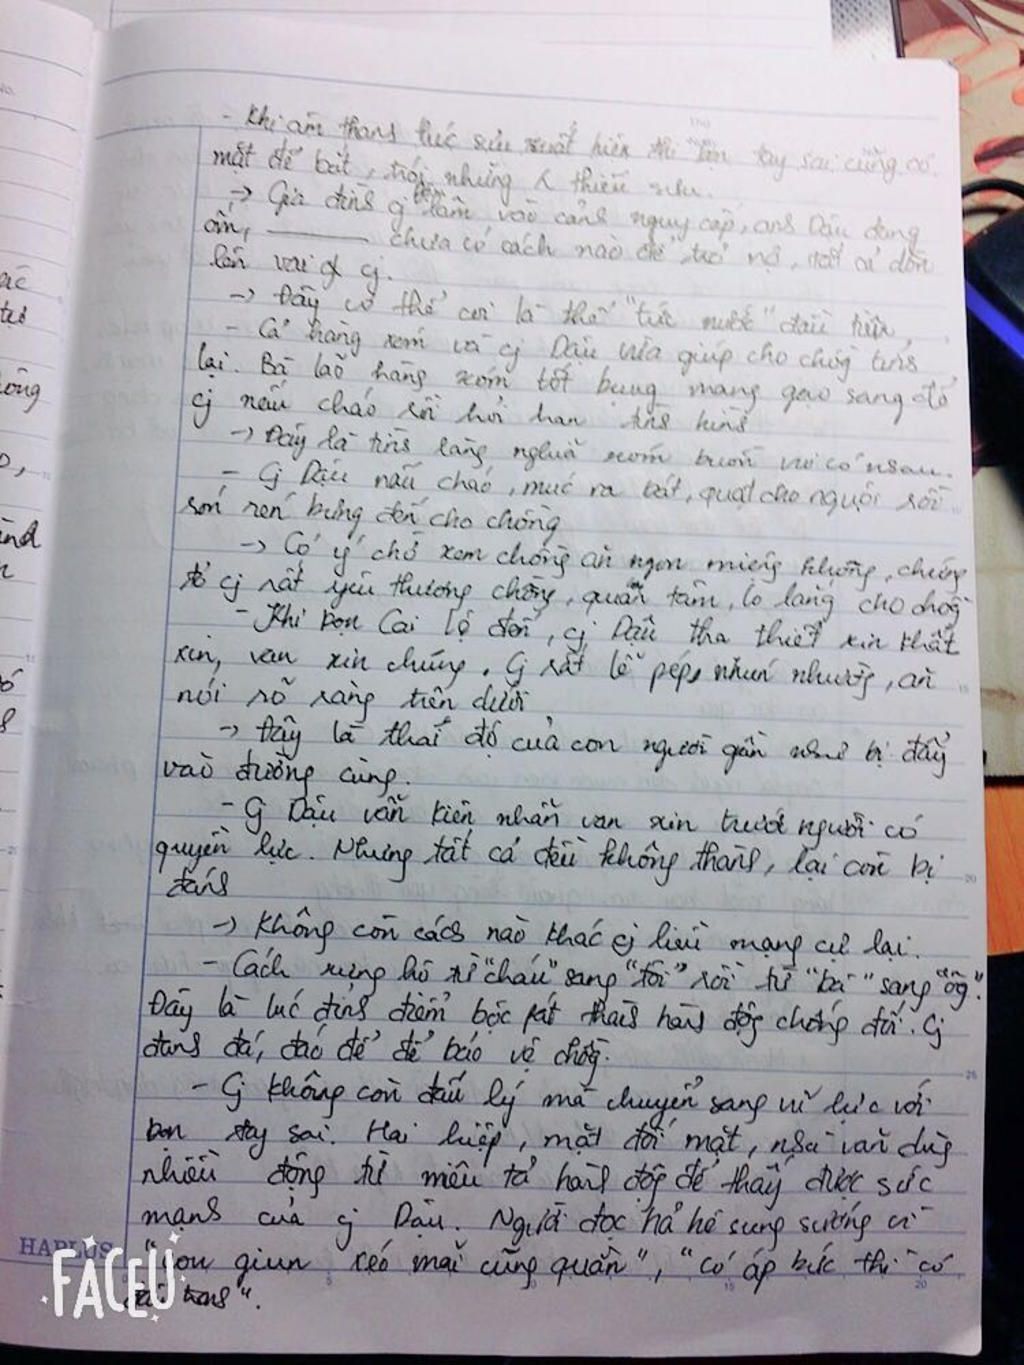 - Khi âm thanh thúc sưu xuất hiện thì bọn tay sai cũng có
mặt để bắt, trói những thiếu sưu.
-> Gia đình lâm vào cảnh nguy cấp, anh Dậu đang
ốm, chưa có cách nào để trả nợ, tất cả dồn
lên vai cj.
-> Đây có thể coi là thế "tức nước" đầu tiên
- Cả hàng xóm và cj Dậu vừa giúp cho chồg tỉnh
lại. Bà lão hàng xóm tốt bụng mang gạo sang để
cj nấu cháo rồi hỏi han tình hình
-> Đây là tình làng nghĩa xóm buồn vui có nhau.
- Cj Dậu nấu cháo, múc ra bát, quạt cho nguội rồi
rón rén bưng đến cho chồng
-> Cố ý chờ xem chồng ăn ngon miệng không, chứng
tỏ cj rất yêu thương chồng, quan tâm, lo lắng cho chồg
- Khi bọn Cai lệ đến, cj Dậu tha thiết xin khất
xin, van xin chúng. Cj rất lễ phép, nhún nhường, ăn
nói rõ ràng trên dưới
-> Đây là thái độ của con người gần như bị đẩy
vào đường cùng.
- Cj Dậu vẫn kiên nhẫn van xin trước người có
quyền lực. Nhưng tất cả đều không thành, lại còn bị
đánh
-> Không còn cách nào khác cj liều mạng cự lại.
- Cách xưng hô từ "cháu" sang "tôi" rồi từ "bà" sang "ôg".
Đây là lúc đỉnh điểm bộc phát thành hành độg chống đối. Cj
đánh đá, đáo để để bảo vệ chồg.
- Cj không còn đấu lý mà chuyển sang vũ lực với
bọn tay sai. Hai hiệp, mặt đối mặt, nhà văn dùg
nhiều động từ miêu tả hành độg để thấy được sức
mạnh của cj Dậu. Người đọc hả hê sung sướng vì
"con giun xéo mãi cũng quằn", "có áp bức thì có
đấu tranh".
HAPLUS
FACEU